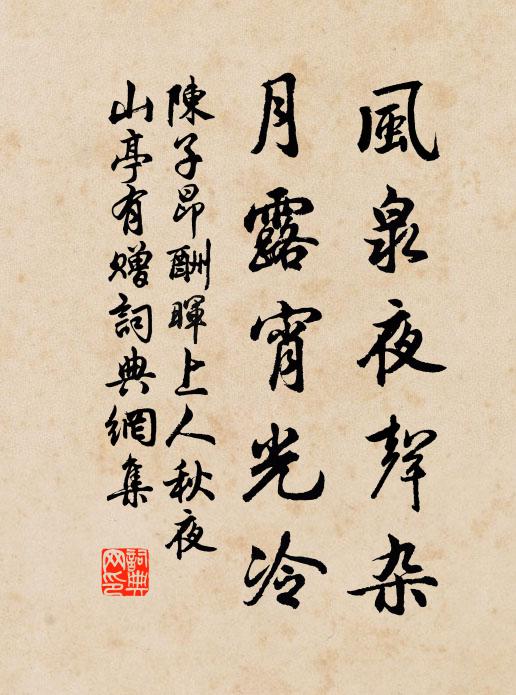 風泉夜聲杂
月露宵光冷
陳子昂酬暉上人秋夜
山亭有贈詞典網集
詞典网印